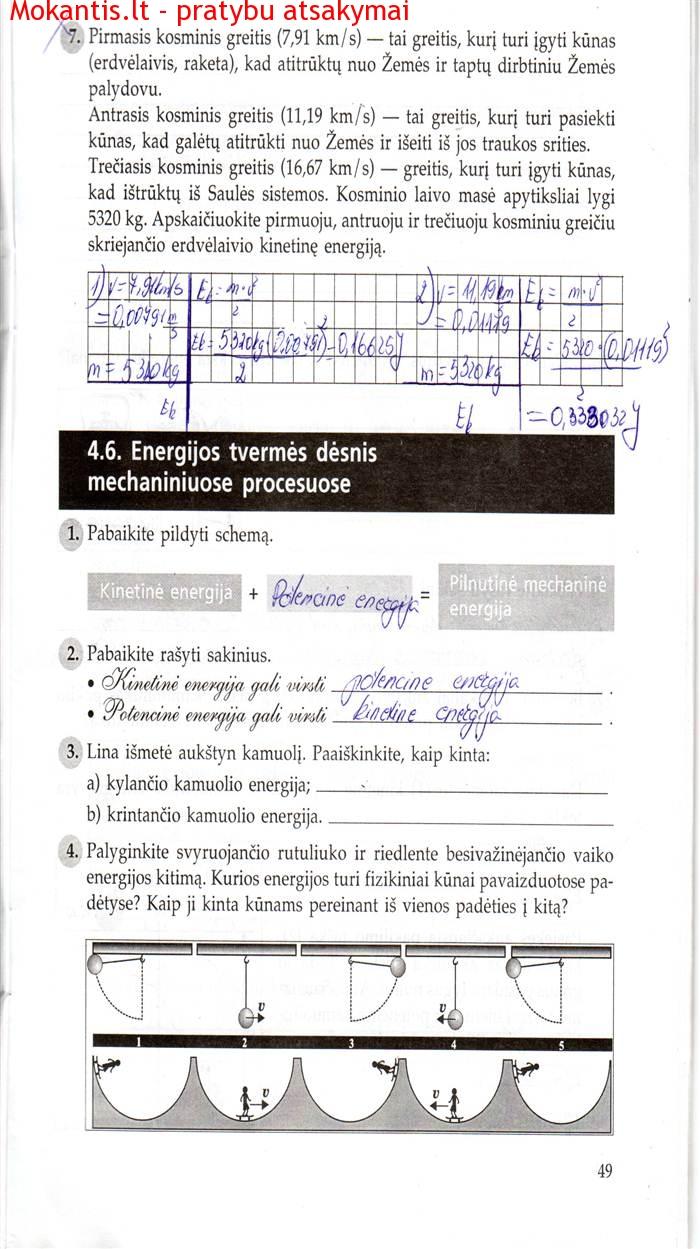 Mokantis.lt - pratybu atsakymai
7. Pirmasis kosminis greitis (7,91 km/s) — tai greitis, kurį turi įgyti kūnas
(erdvėlaivis, raketa), kad atitrūktų nuo Žemės ir taptų dirbtiniu Žemės
palydovu.
Antrasis kosminis greitis (11,19 km/s) — tai greitis, kurį turi pasiekti
kūnas, kad galėtų atitrūkti nuo Žemės ir išeiti iš jos traukos srities.
Trečiasis kosminis greitis (16,67 km/s) — greitis, kurį turi įgyti kūnas,
kad ištrūktų iš Saulės sistemos. Kosminio laivo masė apytiksliai lygi
5320 kg. Apskaičiuokite pirmuoju, antruoju ir trečiuoju kosminiu greičiu
skriejančio erdvėlaivio kinetinę energiją.
1) v=7,91km/s Ek = m·v²/2 2) v=11,19km/s Ek = m·v²/2
=0,00791 m/s =0,01119
Ek = 5320kg(0,00791)²/2 =0,16625J Ek = 5320·(0,01119)²/2
m=5320kg m=5320kg
Ek Ek =0,333032J
4.6. Energijos tvermės dėsnis
mechaniniuose procesuose
1. Pabaikite pildyti schemą.
Kinetinė energija + Potencinė energija = Pilnutinė mechaninė
energija
2. Pabaikite rašyti sakinius.
• Kinetinė energija gali virsti potencine energija .
• Potencinė energija gali virsti kinetine energija .
3. Lina išmetė aukštyn kamuolį. Paaiškinkite, kaip kinta:
a) kylančio kamuolio energija;
b) krintančio kamuolio energija.
4. Palyginkite svyruojančio rutuliuko ir riedlente besivažinėjančio vaiko
energijos kitimą. Kurios energijos turi fizikiniai kūnai pavaizduotose pa-
dėtyse? Kaip ji kinta kūnams pereinant iš vienos padėties į kitą?
v v
1 2 3 4 5
v v
49